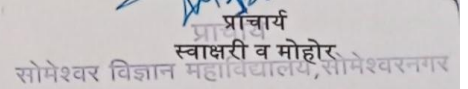 प्राचार्य
प्राचार्य
स्वाक्षरी व मोहोर
सोमेश्वर विज्ञान महाविद्यालय,सोमेश्वरनगर